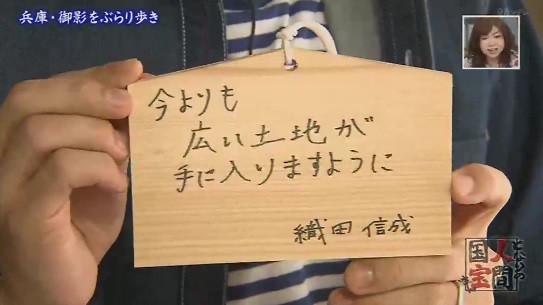 兵庫・御影をぶらり歩き
今よりも
広い土地が
手に入りますように
織田 信成
人間
国宝